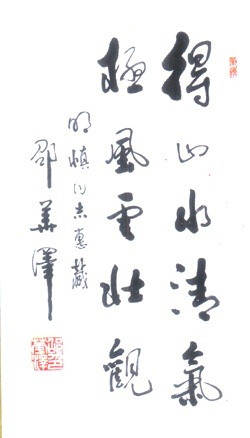 得山水清氣
極風雲壯觀
明慎同志惠藏
邵華澤